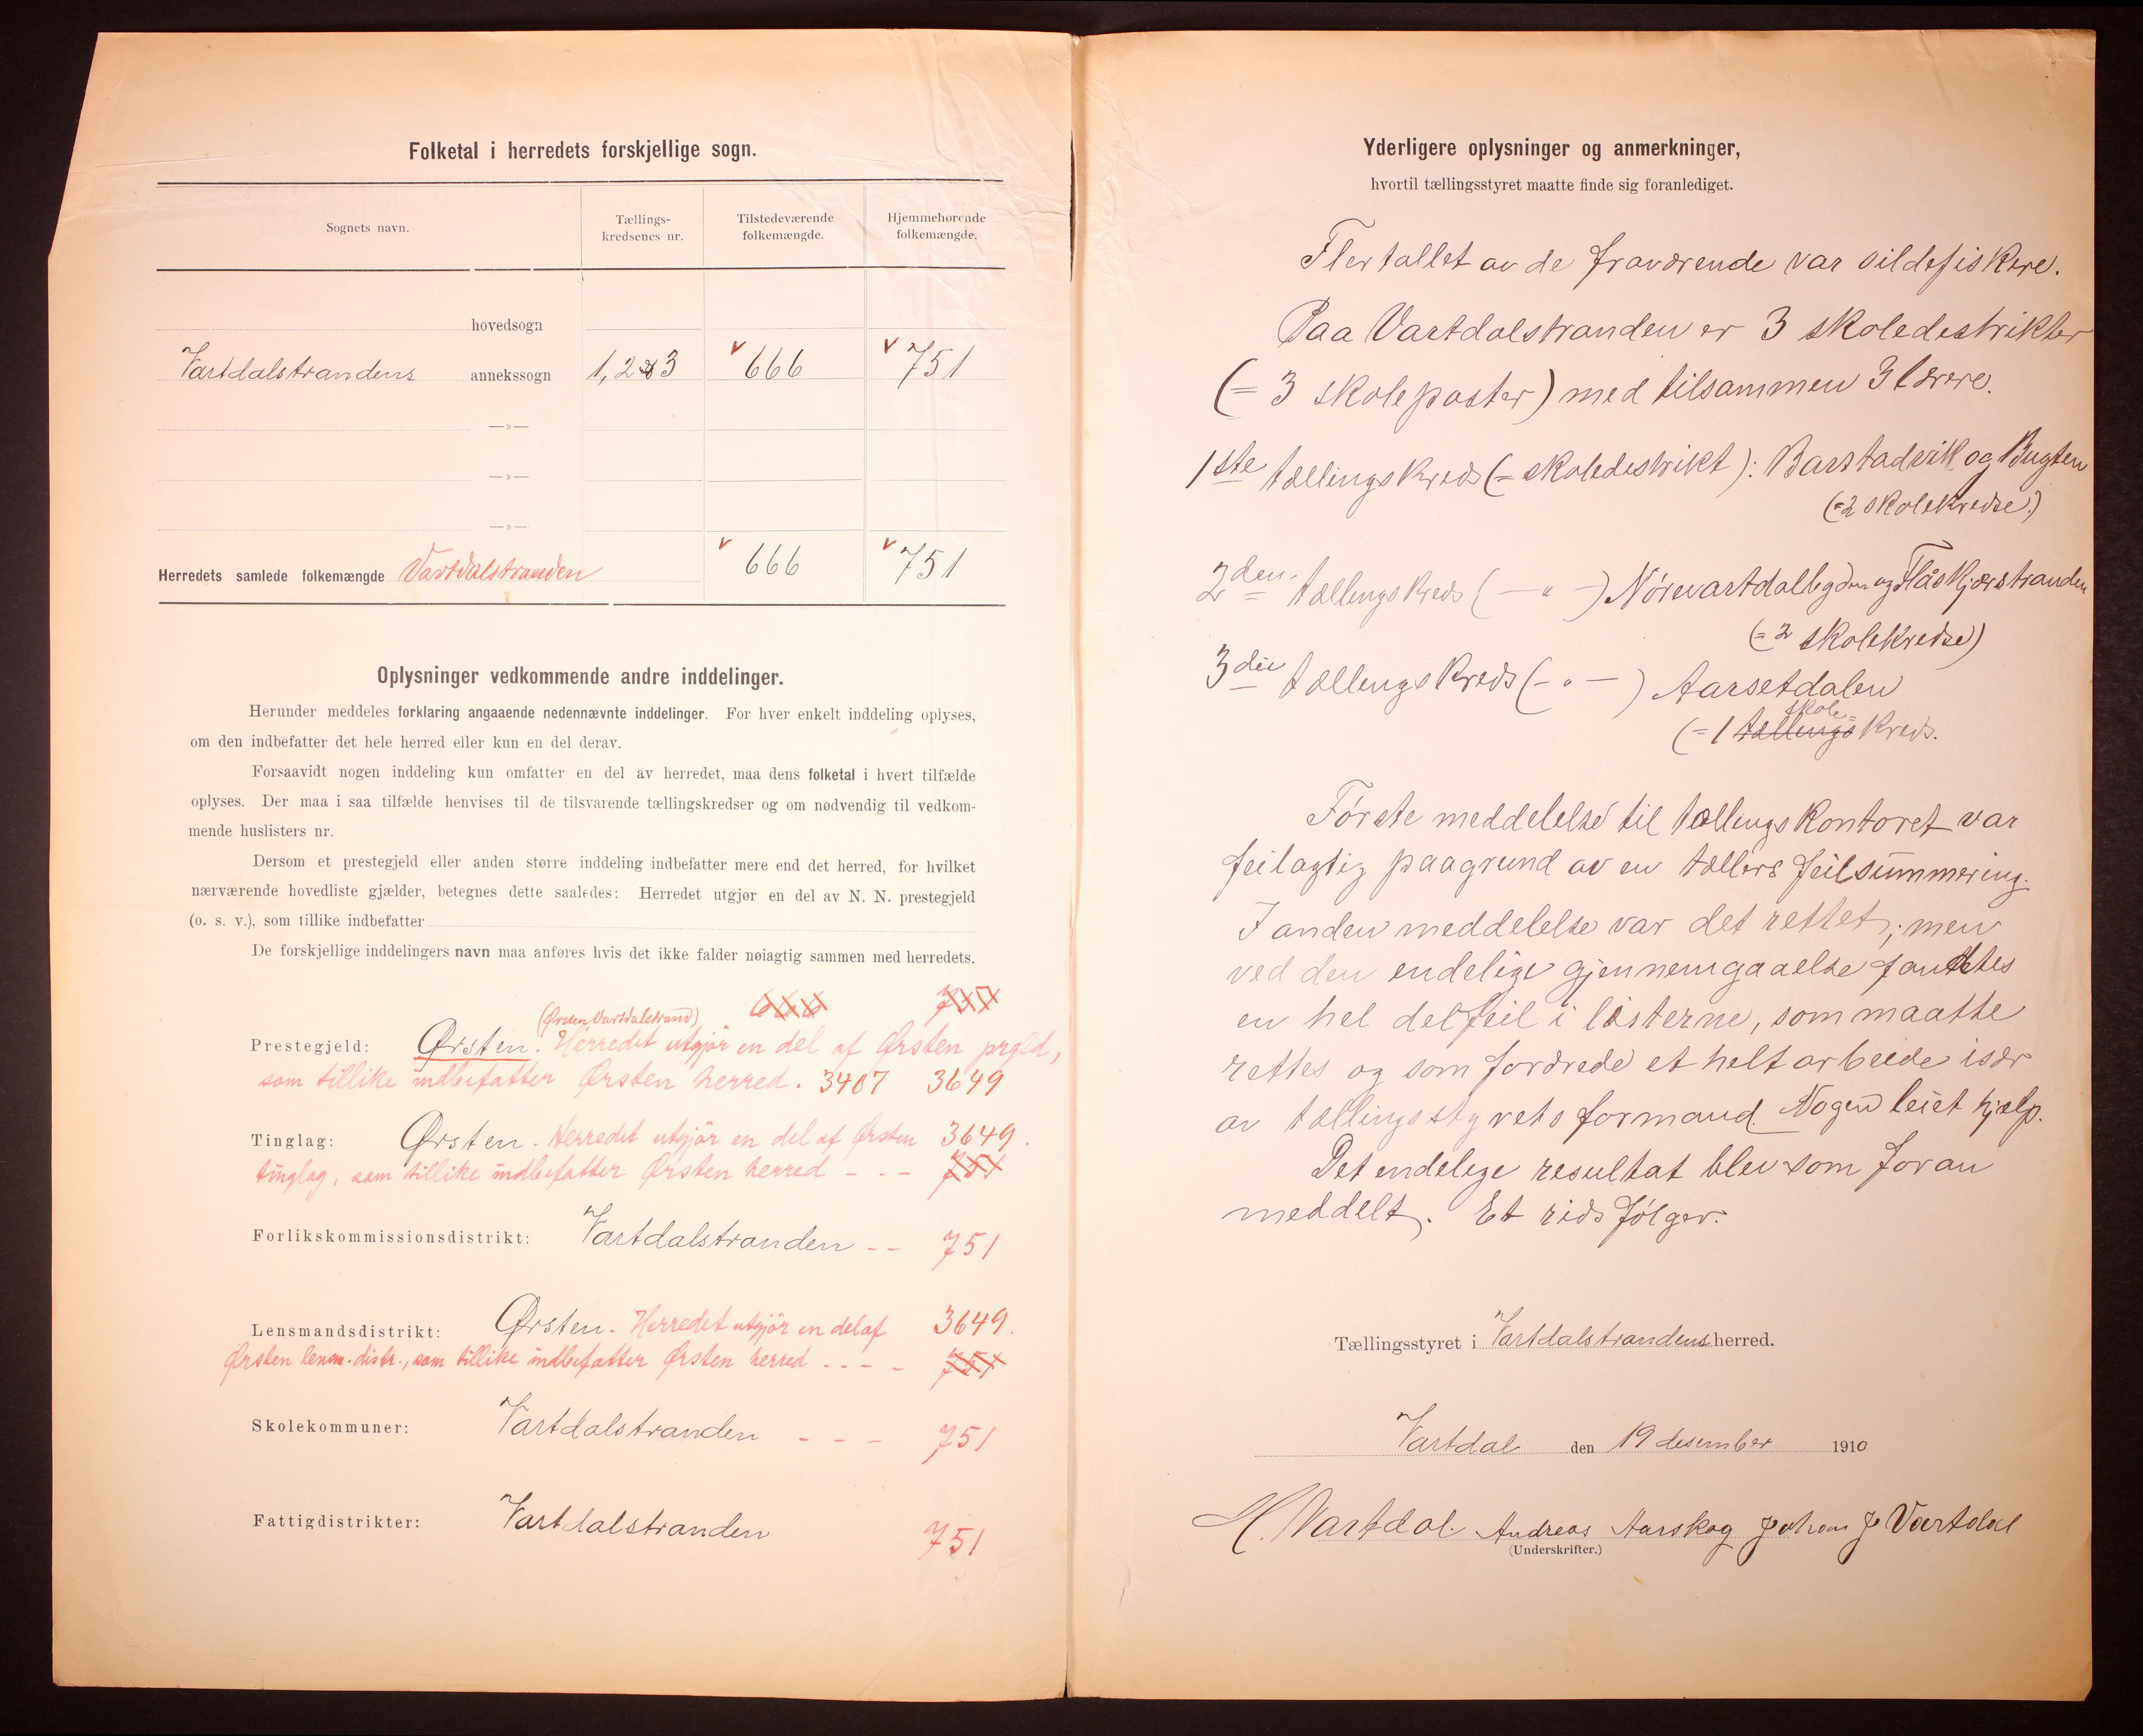 Folketal i herredets forskjellige sogn.
Sognets navn.
Tællings-
kredsenes nr.
Tilstedeværende
folkemængde.
Hjemmehørende
folkemængde.
hovedsogn
Vartdalstrandens annekssogn 1, 2 & 3 666 751
—»—
—»—
—»—
Herredets samlede folkemængde Vartdalstranden 666 751
Oplysninger vedkommende andre inddelinger.
Herunder meddeles forklaring angaaende nedennævnte inddelinger. For hver enkelt inddeling oplyses,
om den indbefatter det hele herred eller kun en del derav.
Forsaavidt nogen inddeling kun omfatter en del av herredet, maa dens folketal i hvert tilfælde
oplyses. Der maa i saa tilfælde henvises til de tilsvarende tællingskredser og om nødvendig til vedkom-
mende huslisters nr.
Dersom et prestegjeld eller anden større inddeling indbefatter mere end det herred, for hvilket
nærværende hovedliste gjælder, betegnes dette saaledes: Herredet utgjør en del av N. N. prestegjeld
(o. s. v.), som tillike indbefatter
De forskjellige inddelingers navn maa anføres hvis det ikke falder nøiagtig sammen med herredets.
(Ørsten, Vartdalstrand) 666 751
Prestegjeld: Ørsten. Herredet utgjör en del af Ørsten prgld,
som tillike indbefatter Ørsten herred. 3407 3649
Tinglag: Ørsten - Herredet utgjör en del af Ørsten 3649.
tinglag, som tillike indbefatter Ørsten herred - - - 751
Forlikskommissionsdistrikt: Vartdalstranden - - 751
Lensmandsdistrikt: Ørsten. Herredet utgjör en del af 3649.
Ørsten lensm. distr., som tillike indbefatter Ørsten herred - - - - 751
Skolekommuner: Vartdalstranden - - - 751
Fattigdistrikter: Vartdalstranden 751
Yderligere oplysninger og anmerkninger,
hvortil tællingsstyret maatte finde sig foranlediget.
Flertallet av de fraværende var sildefiskere.
Paa Vartdalstranden er 3 skoledestrikter
(= 3 skoleposter) med tilsammen 3 lærere.
1ste tællingskreds (= skoledestrikt): Barstadvik og Bugten
(=2 skolekredse.)
2den tællingskreds (— " —) Nörevartdalbygden og Flåskjærstranden
(= 2 skolekredse)
3die tællingskreds (— " —) Aarsetdalen
skole-
(= 1 tællings kreds.
Förste meddelelse til tællingskontoret var
feilagtig paagrund av en tællers feilsummering.
I anden meddelelse var det rettet; men
ved den endelige gjennemgaaelse fandtes
en hel del feil i listerne, som maatte
rettes og som fordrede et helt arbeide især
av tællingsstyrets formand. Nogen leiet hjælp.
Det endelige resultat blev som foran
meddelt. Et rids fölger.
Tællingsstyret i Vartdalstrandens herred.
Vartdal den 19 desember 1910
H. Vartdal. Andreas Aarskog Johan J Vartdal
(Underskrifter.)